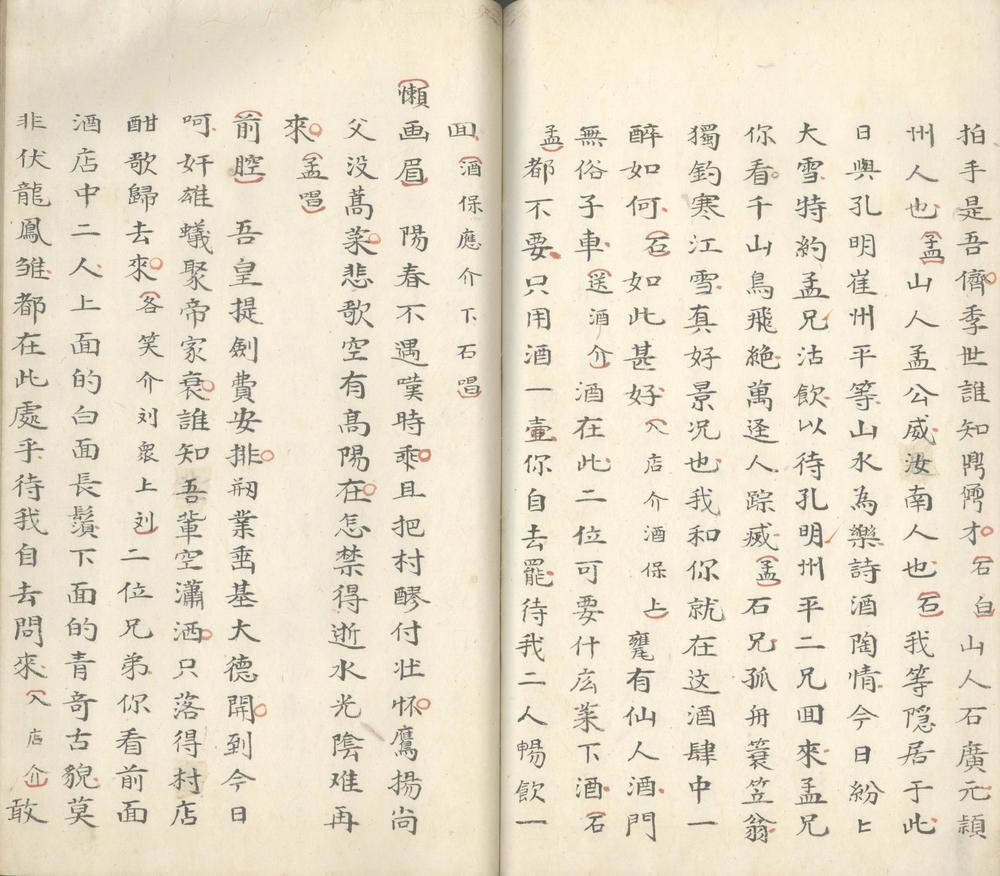 拍手是吾儕季世誰知鼎鼐才石白山人石廣元穎
州人也孟山人孟公威汝南人也石我等隱居于此
日與孔明崔州平等山水為樂詩酒陶情今日紛上
大雪特約孟兄沽飲以待孔明州平二兄囬來孟兄
你看千山鳥飛絶萬逕人踪滅孟石兄孤舟簑笠翁
獨釣寒江雪真好景况也我和你就在这酒肆中一
醉如何石如此甚好入店介酒保上甕有仙人酒門
無俗子車送酒介酒在此二位可要什庅菜下酒石
孟都不要只用酒一壷你自去罷待我二人暢飲一
囬酒保應介下石唱
懶画眉陽春不遇嘆時乖且把村醪付壮怀鷹揚尚
父没蒿莱悲歌空有高陽在怎禁得逝水光陰难再
來孟唱
前腔吾皇提劍費安排剏業埀基大德開到今日
呵奸雄蟻聚帝家衰誰知吾輩空瀟洒只落得村店
酣歌歸去來各笑介刘衆上刘二位兄弟你看前面
酒店中二人上面的白面長鬚下面的青奇古貌莫
非伏龍鳳雏都在此處乎待我自去問來入店介敢